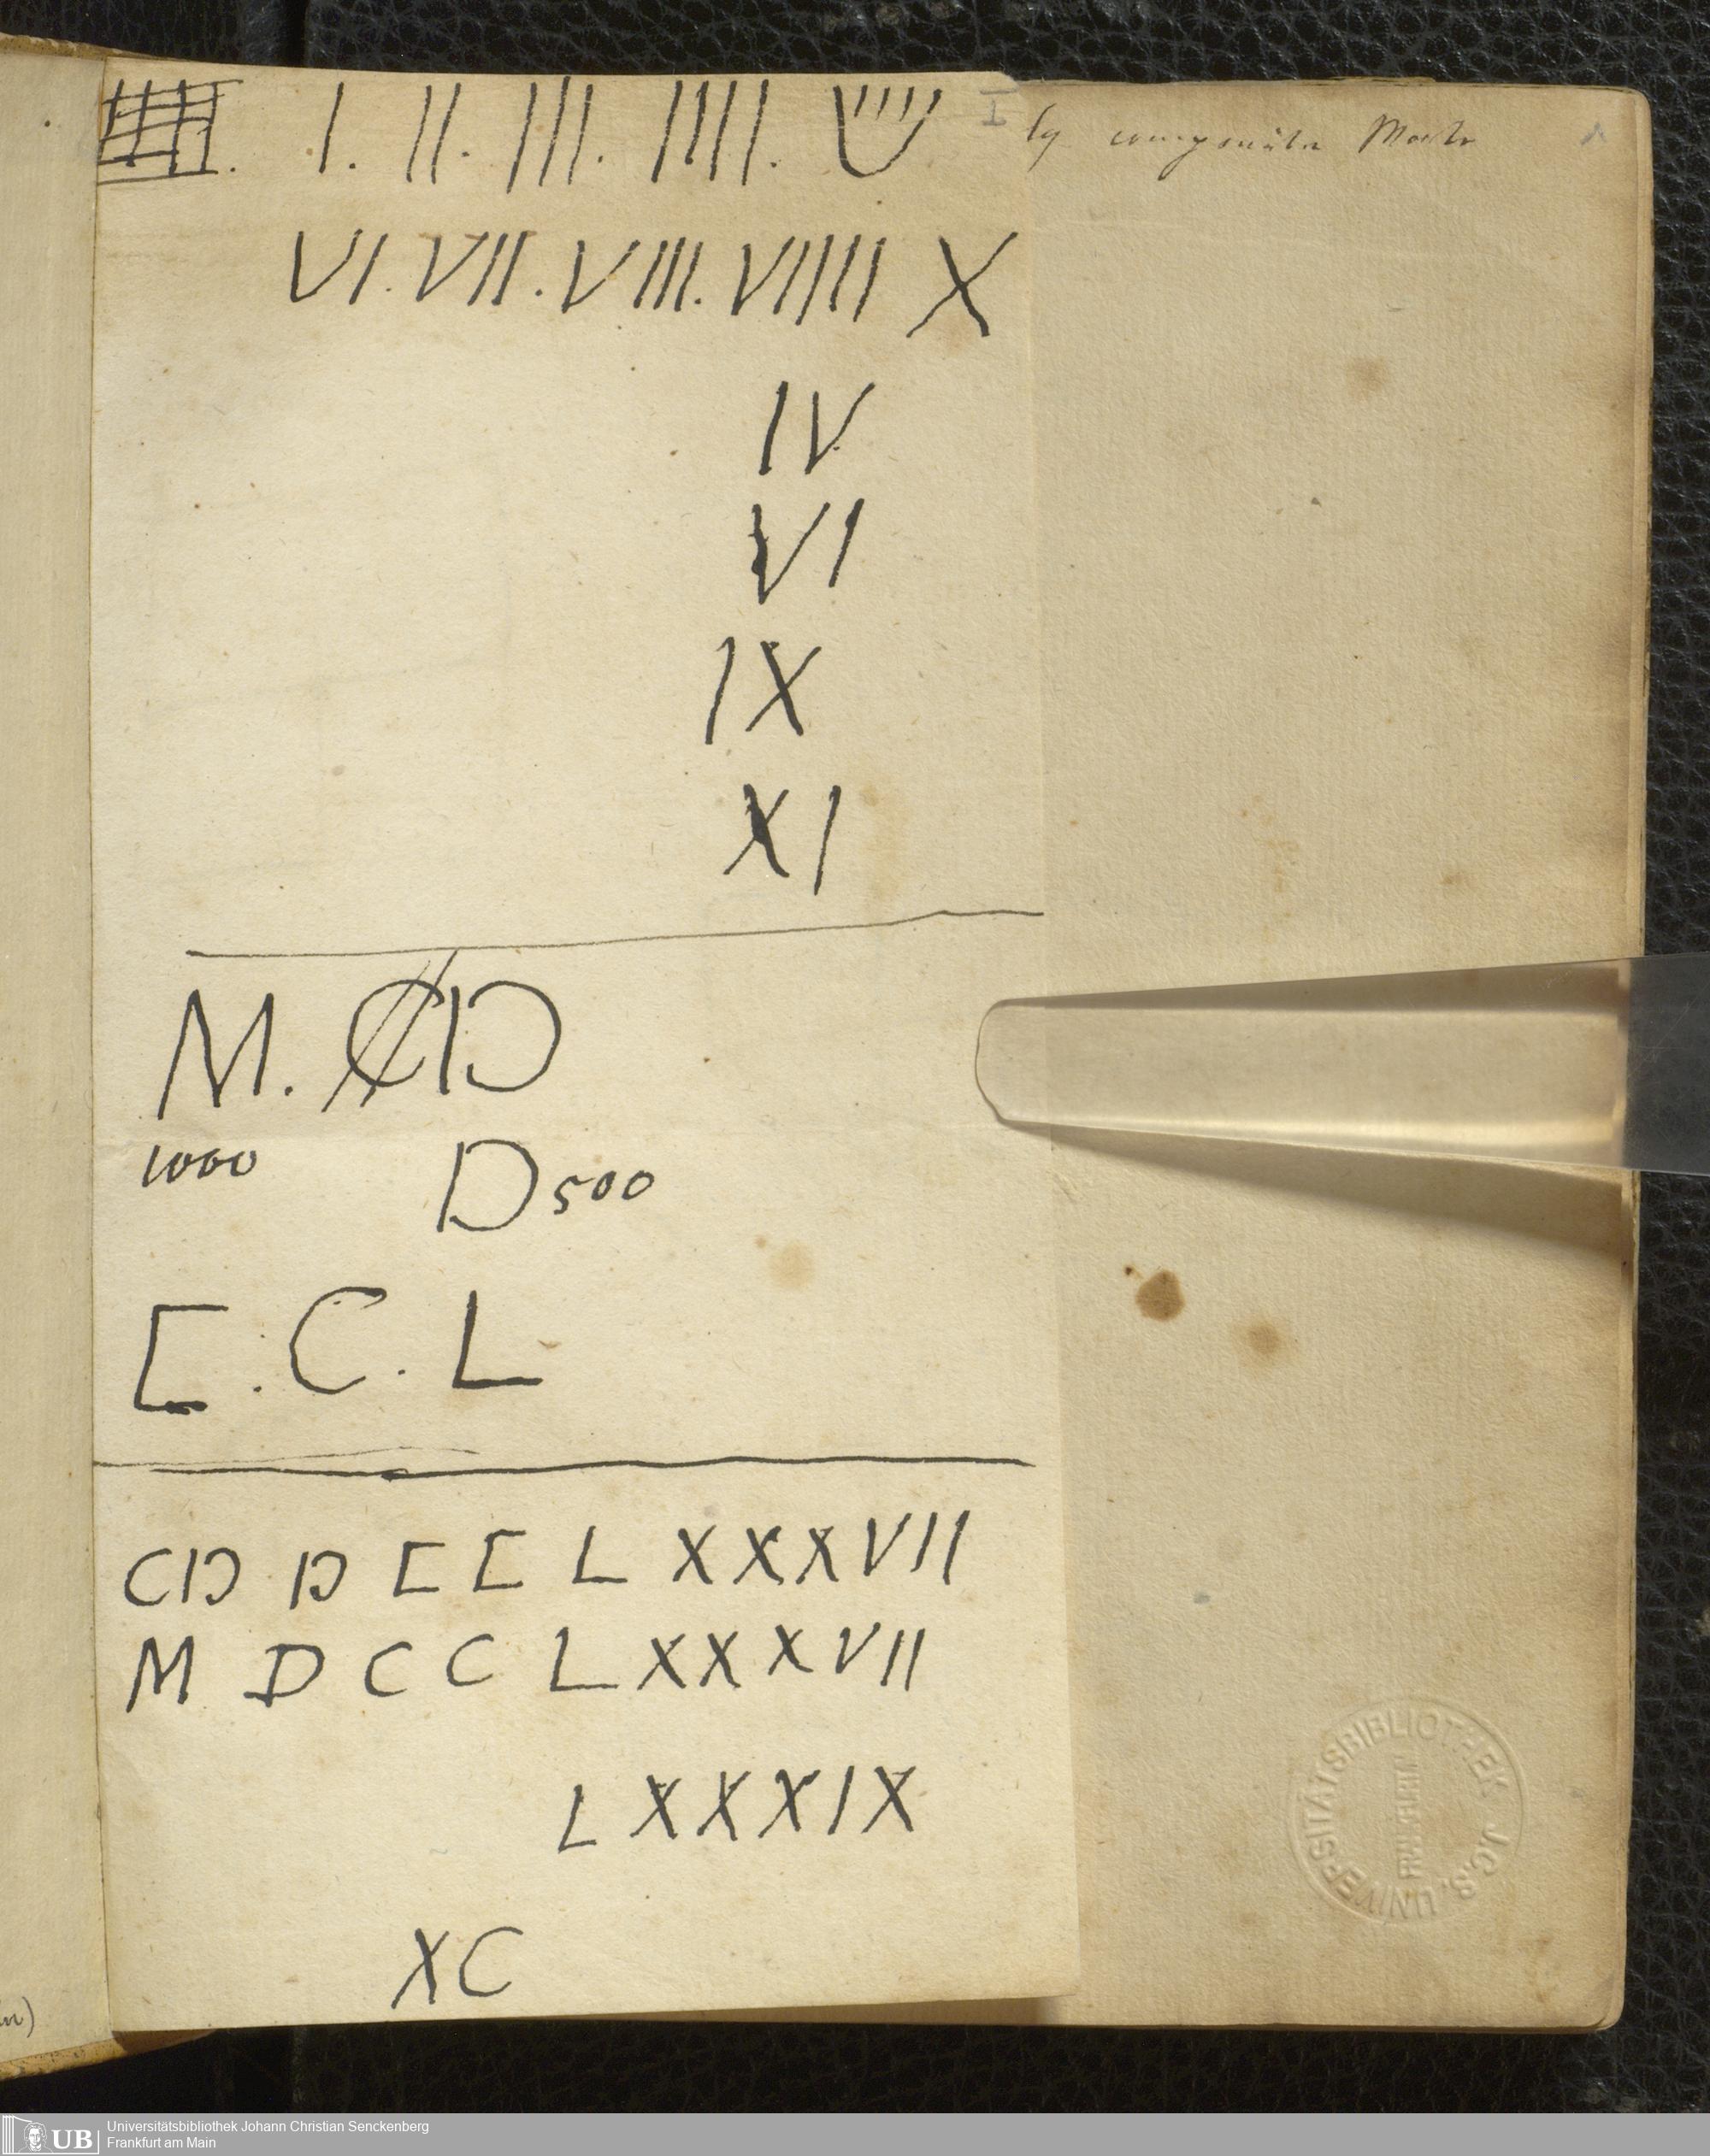 I. II. III. IIII. V I
VI. VII. VIII. VIIII X
IV
VI
IX
XI
M. CIƆ
1000 D 500
C. C. L
CIƆ IƆ C C L X X X V I I
M D C C L X X X V I I
L X X X I X
X C
UNIVERSITÄTSBIBLIOTHEK J.C.S.
FRANKFURT/M
Universitätsbibliothek Johann Christian Senckenberg
UB Frankfurt am Main